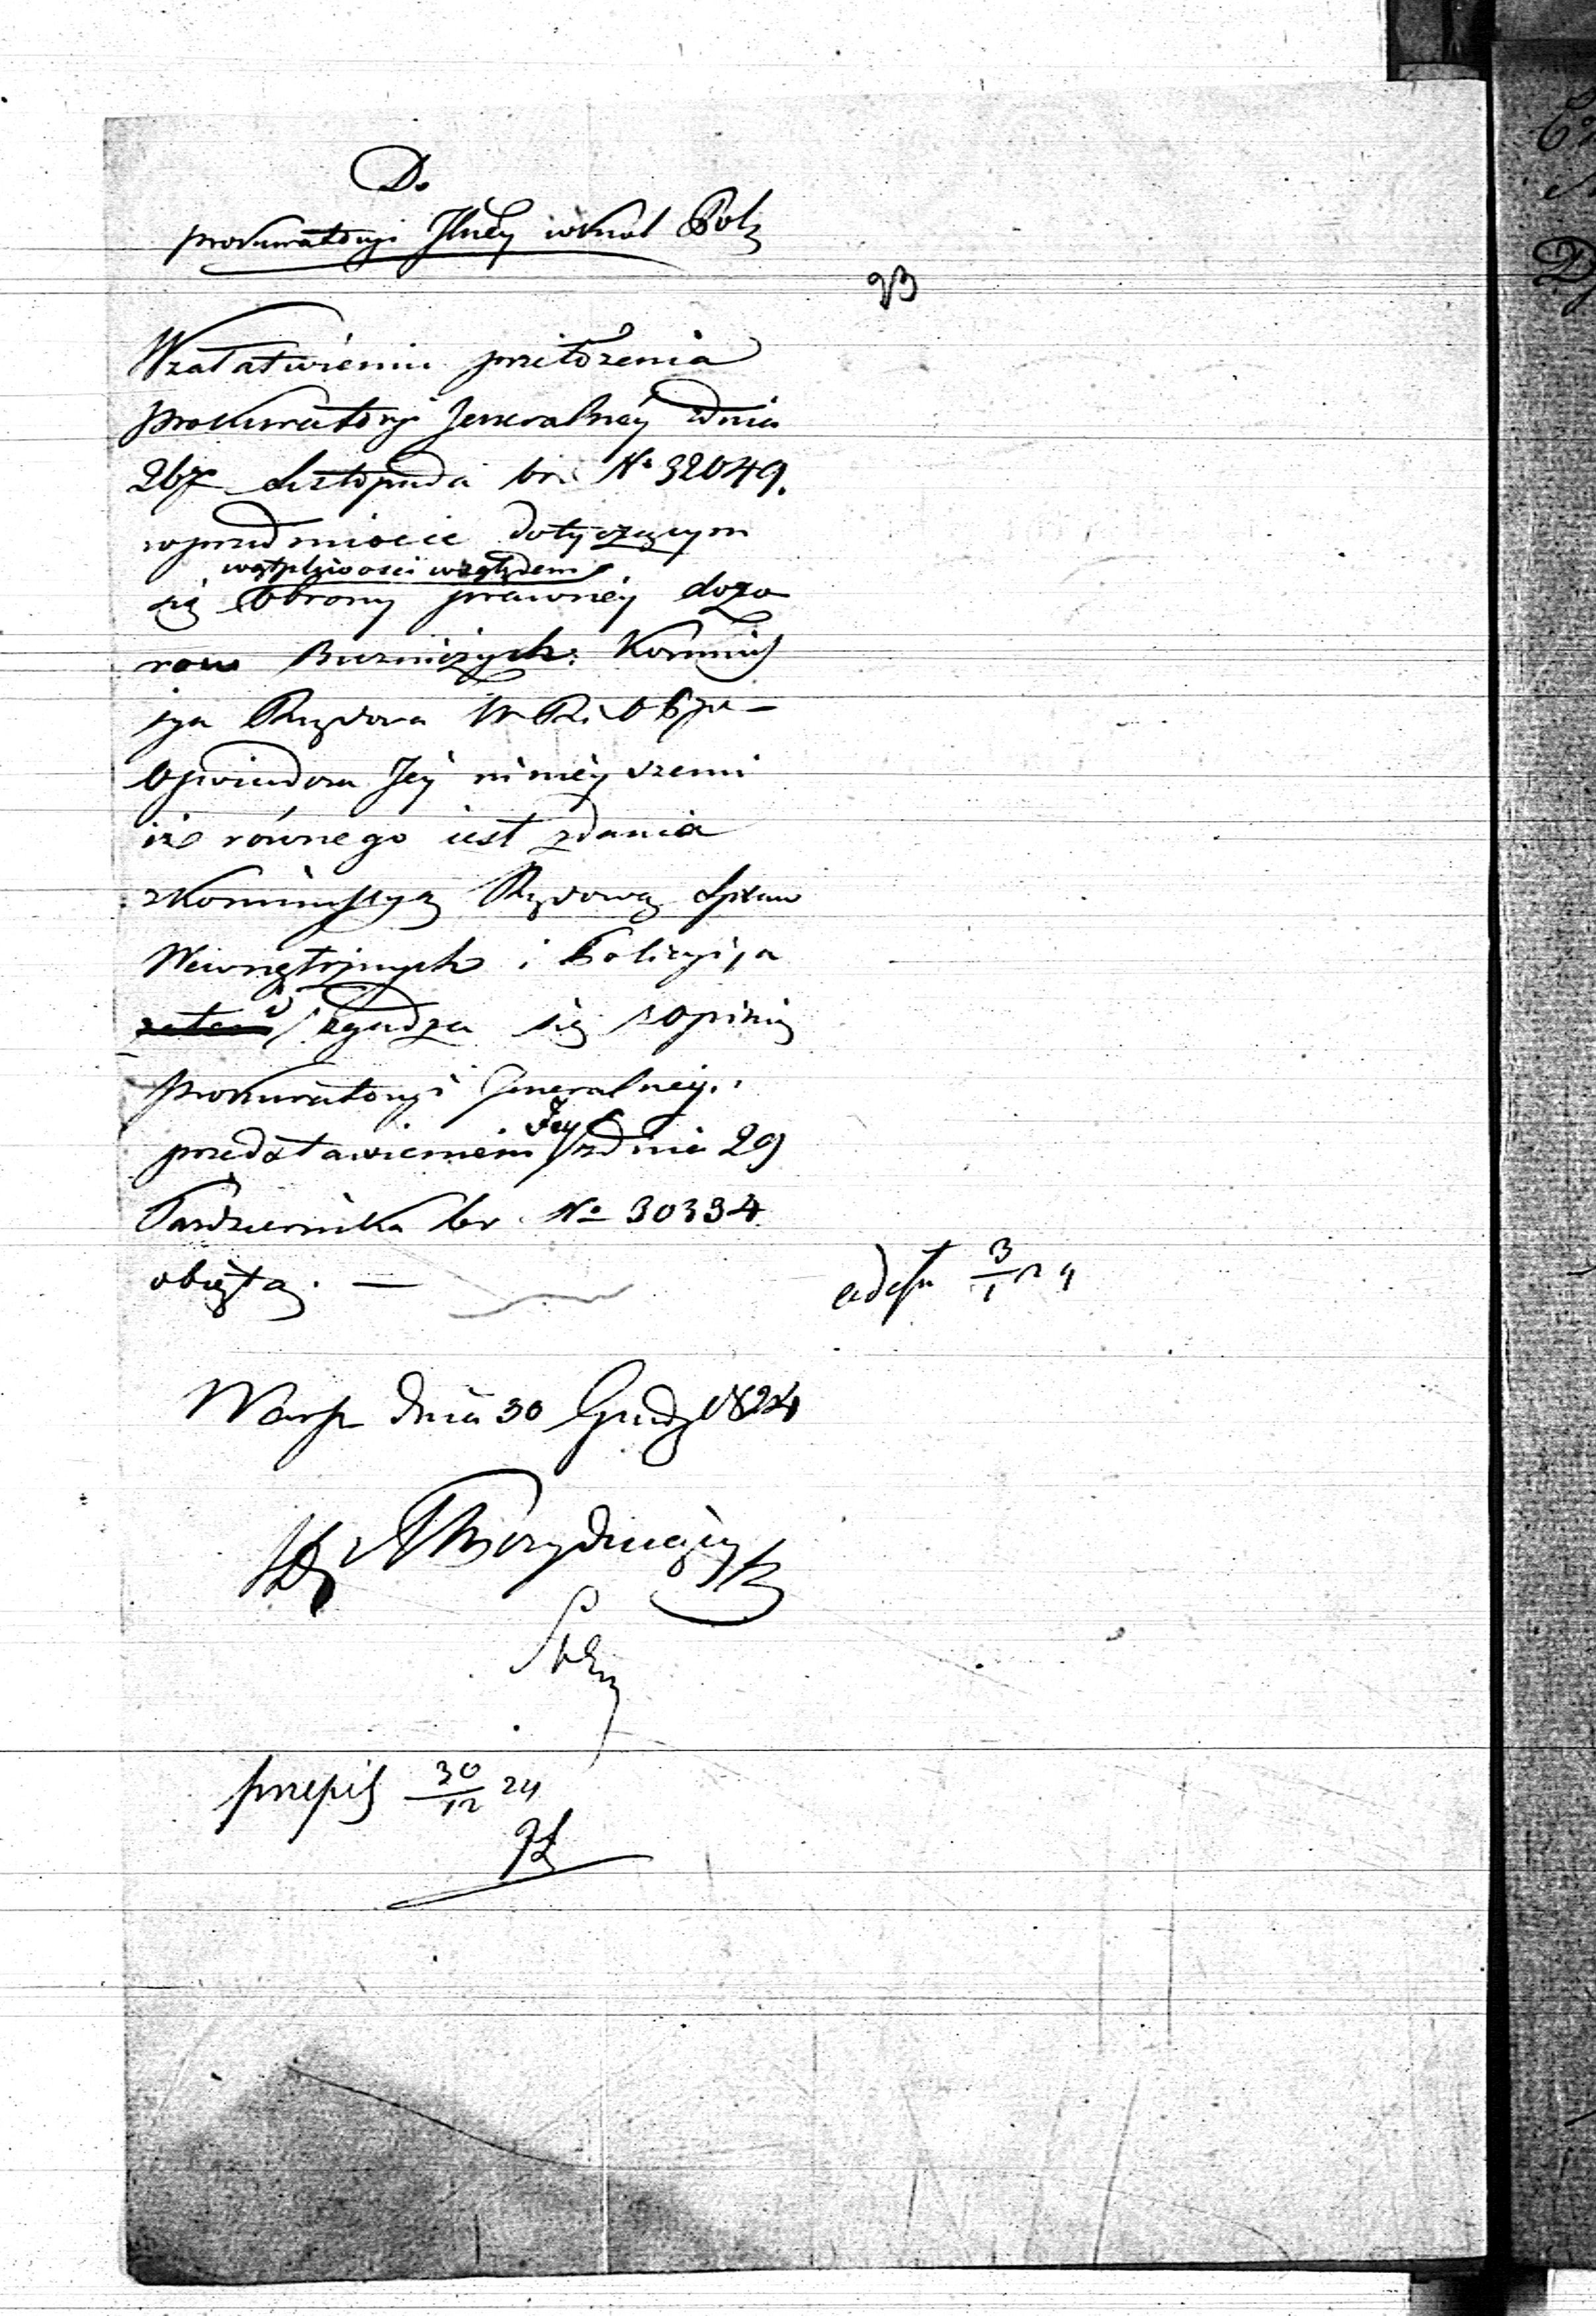 Do
prokuratoryi Jlnéy w Król Pols
93
W załatwieniu przełożenia
prokuratoryi Jeneralnéy z dnia
26 Listopada br. No 32049.
w przedmiocie dotyczącym
wątpliwości względem
się obrony prawnéy dozo
rów Bużniczych: Kommis
sya Rządowa W. R. i O. P.
Opowiada Jéy ninieyszem
iż równego iest zdania
z Kommissyą Rządową Spraw
Wewnętrznych i Policyi, a
zatem zgadza się z opinią
prokuratoryi Generalnéy,
przedstawieniem Jey z dnia 29
Pazdziernika br. No 30334
obiętą. —
Warsz dnia 30 Grudz 1824
przepis 30/12 24